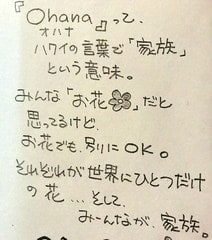 『Ohana』って、
オハナ
ハワイの言葉で「家族」
という意味。
みんな「お花」だと
思ってるけど、
お花でも、別にOK。
それぞれが世界にひとつだけ
の花…そして、
み〜んなが、家族。